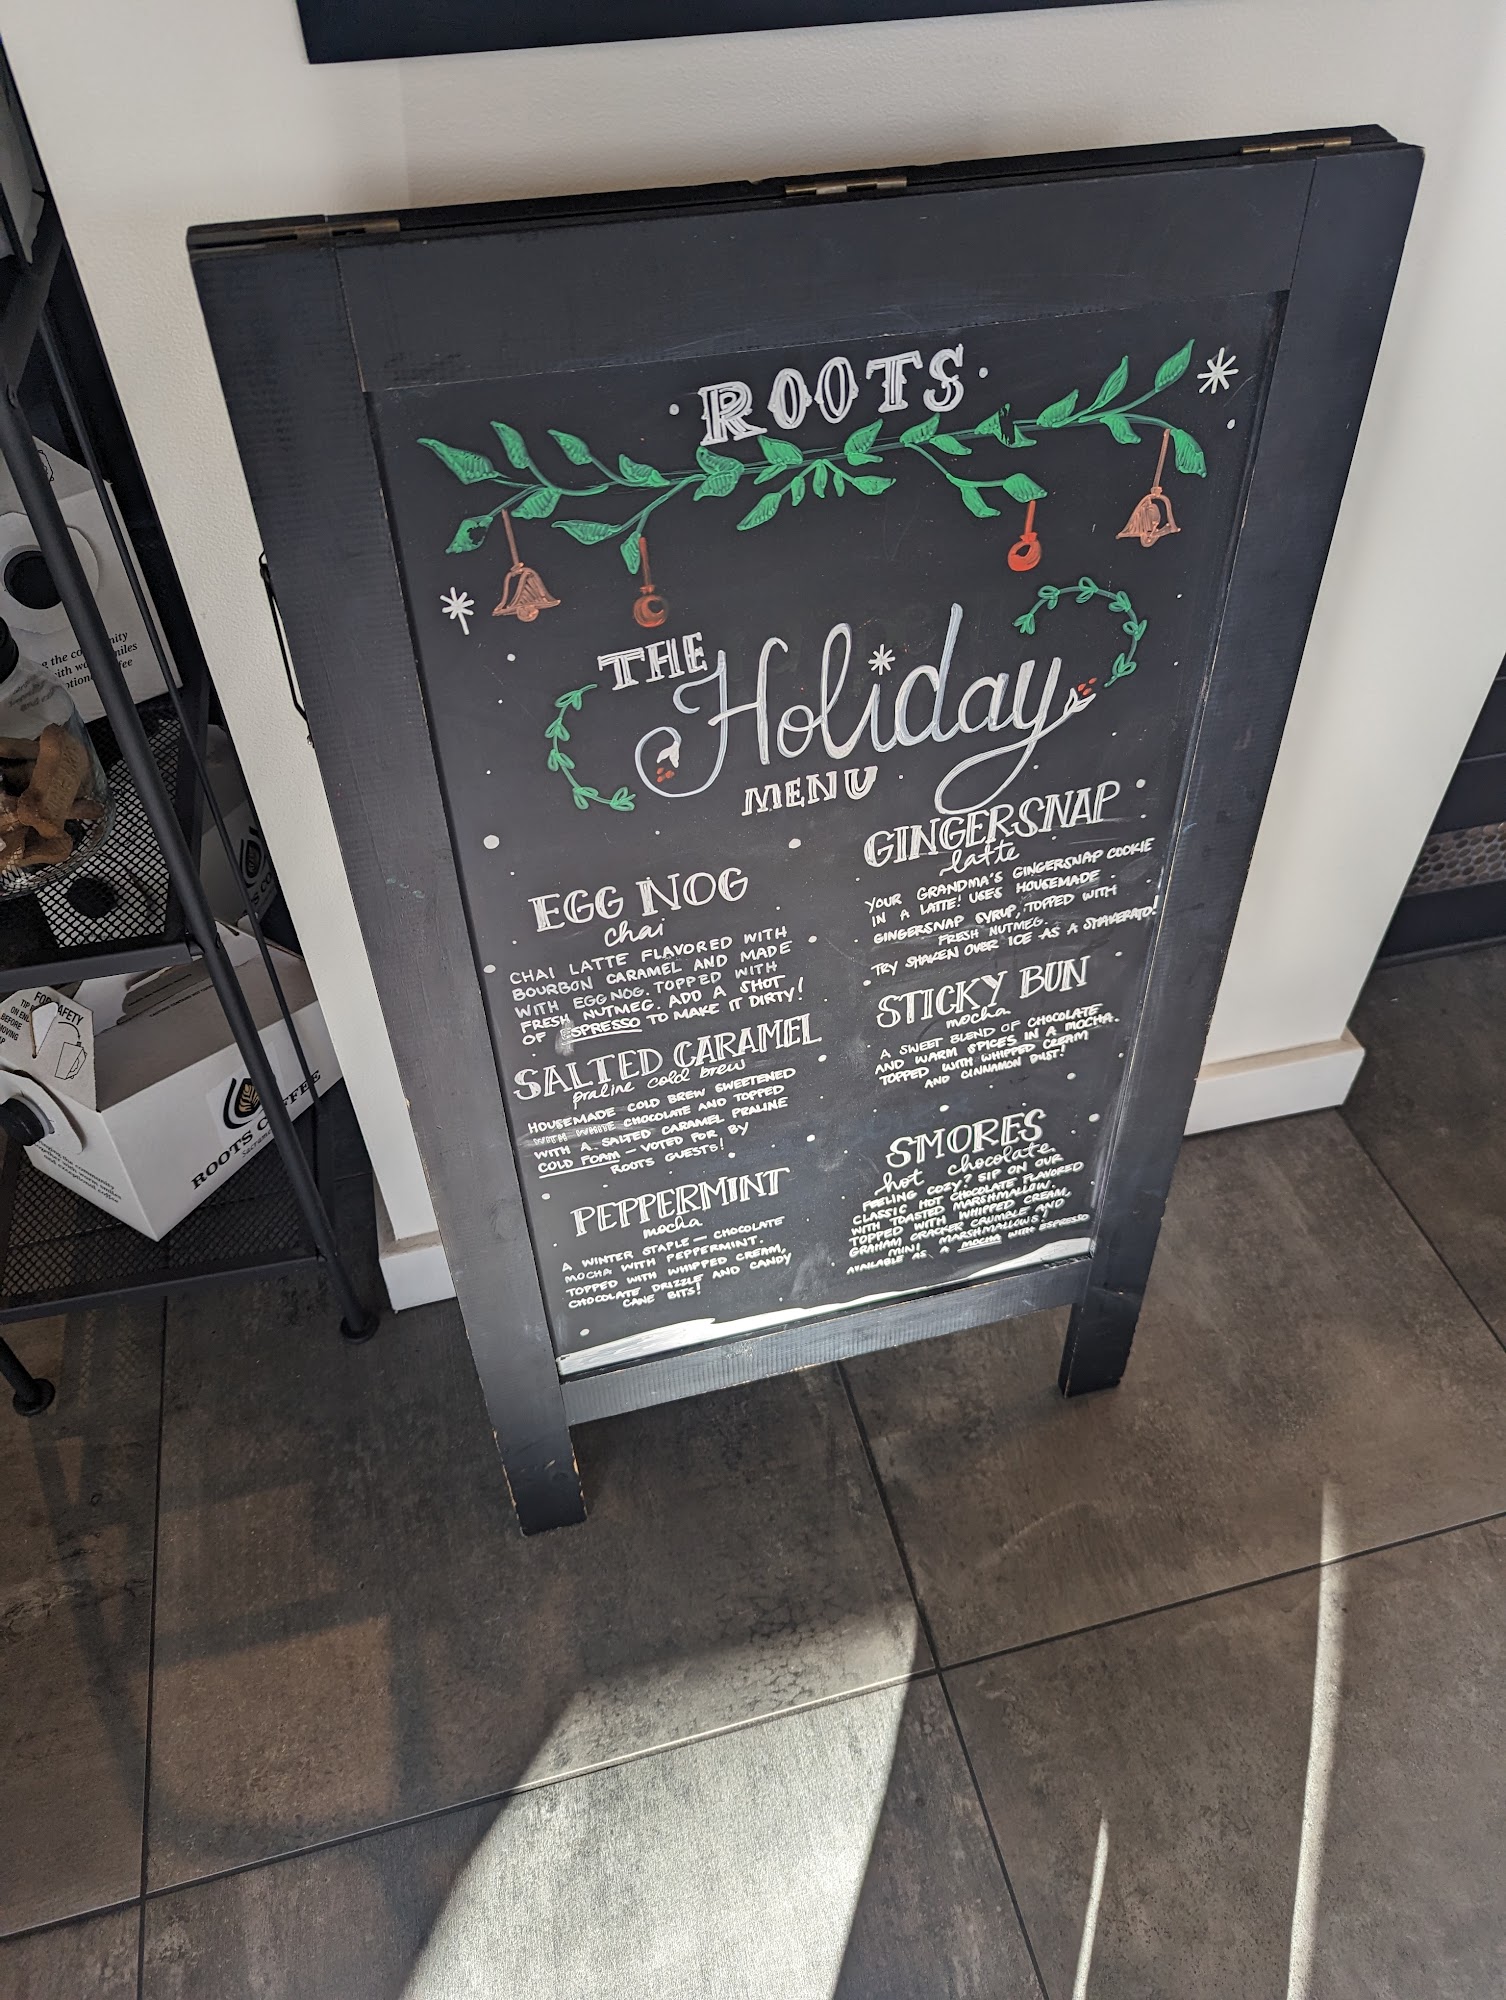 ROOTS
THE Holiday
MENU
EGG NOG
chai
CHAI LATTE FLAVORED WITH
BOURBON CARAMEL AND MADE
WITH EGG NOG. TOPPED WITH
FRESH NUTMEG. ADD A SHOT
OF ESPRESSO TO MAKE IT DIRTY!
SALTED CARAMEL
praline cold brew
HOUSEMADE COLD BREW SWEETENED
WITH WHITE CHOCOLATE AND TOPPED
WITH A SALTED CARAMEL PRALINE
COLD FOAM - VOTED FOR BY
ROOTS GUESTS!
PEPPERMINT
mocha
A WINTER STAPLE - CHOCOLATE
MOCHA WITH PEPPERMINT.
TOPPED WITH WHIPPED CREAM,
CHOCOLATE DRIZZLE AND CANDY
CANE BITS!
GINGERSNAP
latte
YOUR GRANDMA'S GINGERSNAP COOKIE
IN A LATTE! USES HOUSEMADE
GINGERSNAP SYRUP, TOPPED WITH
FRESH NUTMEG.
TRY SHAKEN OVER ICE AS A SHAKERATO!
STICKY BUN
mocha
A SWEET BLEND OF CHOCOLATE
AND WARM SPICES IN A MOCHA.
TOPPED WITH WHIPPED CREAM
AND CINNAMON DUST!
SMORES
hot chocolate
FEELING COZY? SIP ON OUR
CLASSIC HOT CHOCOLATE FLAVORED
WITH TOASTED MARSHMALLOW.
TOPPED WITH WHIPPED CREAM,
GRAHAM CRACKER CRUMBLE AND
MINI MARSHMALLOWS!
AVAILABLE AS A MOCHA WITH ESPRESSO
FOR SAFETY
BEFORE
ROOTS COFFEE